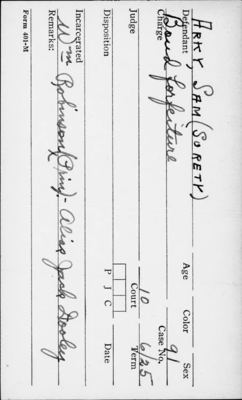 ARKY, SAM (SURETY)
Defendant Age Color Sex
Bond forfeiture 91
Charge Case No.
10 6/25
Judge Court Term
P J C
Disposition Date
Incarcerated
Wm Robinson (Prin) - alias Jack Dooley
Remarks:
Form 401-M